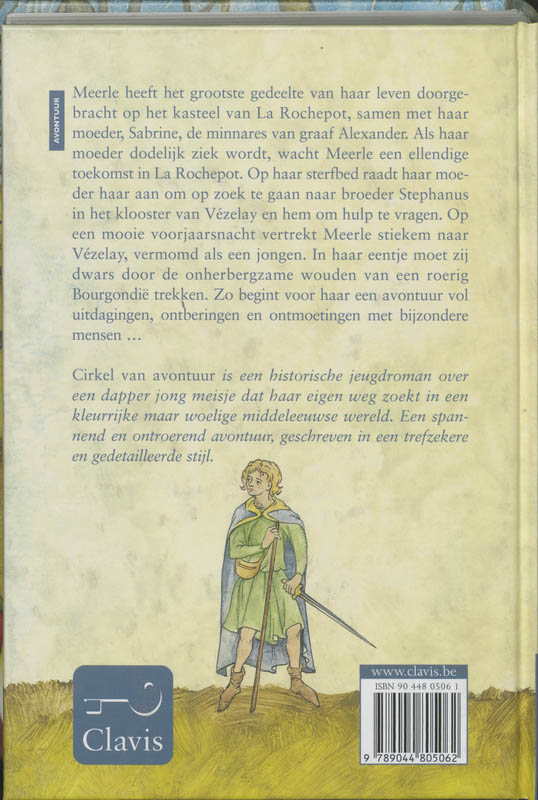 AVONTUUR
Meerle heeft het grootste gedeelte van haar leven doorge-
bracht op het kasteel van La Rochepot, samen met haar
moeder, Sabrine, de minnares van graaf Alexander. Als haar
moeder dodelijk ziek wordt, wacht Meerle een ellendige
toekomst in La Rochepot. Op haar sterfbed raadt haar moe-
der haar aan om op zoek te gaan naar broeder Stephanus
in het klooster van Vézelay en hem om hulp te vragen. Op
een mooie voorjaarsnacht vertrekt Meerle stiekem naar
Vézelay, vermomd als een jongen. In haar eentje moet zij
dwars door de onherbergzame wouden van een roerig
Bourgondië trekken. Zo begint voor haar een avontuur vol
uitdagingen, ontberingen en ontmoetingen met bijzondere
mensen …
Cirkel van avontuur is een historische jeugdroman over
een dapper jong meisje dat haar eigen weg zoekt in een
kleurrijke maar woelige middeleeuwse wereld. Een span-
nend en ontroerend avontuur, geschreven in een trefzekere
en gedetailleerde stijl.
Clavis
www.clavis.be
ISBN 90 448 0506 1
9 789044 805062